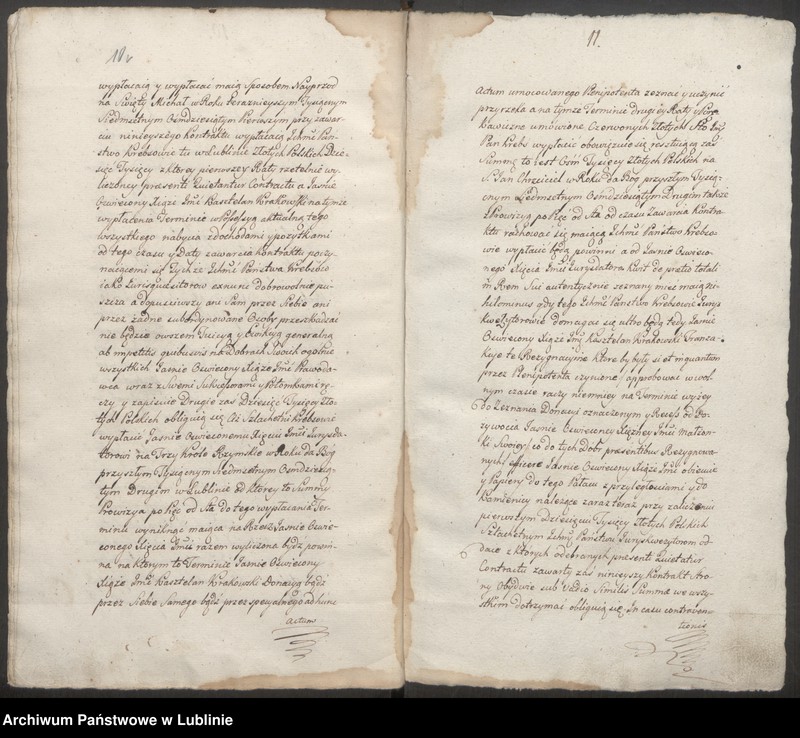 10v
wypłacaią y wypłacać maią Sposobem Nayprzod
na Swięty Michał w Roku teraznieyszym Tysiącznym
Siedmsetnym Osmdziesiątym Pierwszym przy zawar-
ciu ninieyszego Kontraktu wypłacaią Ichmć Pań-
stwo Krebsowie tu w Lublinie Złotych Polskich Dzie-
sięć Tysięcy z ktorey pierwszey Raty rzetelnie wy-
liczoney presenti Quietantur Contractu a Jaśnie
Oświecony Xiąże Jmć Kasztelan Krakowski na tymze
wypłacenia Terminie w Possessyą aktualną tego
wszystkiego nabycia z dochodami y pozytkami
od tego czasu y Daty zawarcia kontraktu poczy-
naiącemi się Tychże Ichmć Państwa Krebsów
iako Jurisquesitorow exnunc dobrowolnie pu-
szcza a dopusciwszy ani Sam przez Siebie ani
przez żadne subordynowane Osoby przeszkadzać
nie będzie owszem Tuicyą y Ewikcyą generalną
ab impetitis quibusvis na Dobrach Swoich ogolnie
wszystkich Jaśnie Oświecony Xiąże Jmć Prawoda-
wca wraz z Swemi Sukcessorami y Potomkami rę-
czy y zapisuie Drugie zas Dziesięć Tysięcy Zło-
tych Polskich obliguią się Ciż Szlachetni Krebsowie
wypłacić Jaśnie Oświeconemu Xięciu Jmći Jurysda-
torowi na Trzy Krole Rzymskie w Roku da Bóg
przyszłym Tysiącznym Siedmsetnym Osmdziesią-
tym Drugim w Lublinie od ktorey to Summy
Prowizya po Pięć od Sta do tego wypłacania Ter-
minu wyniknąć maiąca na Rzecz Jaśnie Oświe-
conego Xięcia Jmći razem wyliczona bydź powin-
na na ktorym to Terminie Jaśnie Oświecony
Xiąże Jmć Kasztelan Krakowski Donacyą bądź
przez Siebie Samego bądź przez specyalnego ad hunc
actum
11.
Actum umocowanego Plenipotenta zeznać y uczynić
przyrzeka a na tymze Terminie drugiey Raty y
Kawiczne umówione Czerwonych Złotych Sto Jmć
Pan Krebs wypłacić obowiązuie się resztuiącą zaś
Summę to iest Ośm Tysięcy Złotych Polskich na
S. Jan Chrzciciel w Roku da Bóg przyszłym Tysią-
cznym Siedmsetnym Osmdziesiątym Drugim także
z Prowizyą po Pięć od Sta od czasu Zawarcia Kontra-
ktu rachować się maiącą Ichmć Państwo Krebso-
wie wypłacić będą powinni a od Jaśnie Oświeco-
nego Xięcia Jmći Jurysdatora Kwit de pretio totali
in Rem Sui autentycznie zeznany mieć maią ni-
hilominus gdy tego Ichmć Państwo Krebsowie Jurys
kwezytorowie domagać się ultro będą tedy Jaśnie
Oświecony Xiąże Jmć Kasztelan Krakowski Tranza-
kcye te Rezygnacyine ktore by były si et in quantum
przez Plenipotenta czynione approbować w wol-
nym czasie raczy niemniey na Terminie wyżey
do Zeznania Donacyi oznaczonym y Recess od Do-
zywocia Jaśnie Oświeconey Xiężney Jmći Małżon-
ki Swoiey co do tych Dobr praesentibus Rezygnowa-
nych efficere Jaśnie Oświecony Xiąże Jmć obiecuie
y Papiery do tego Pałacu z przyległosciami y do
Kamienicy należące zaraz teraz przy zaliczeniu
pierwszym Dziesięciu Tysięcy Złotych Polskich
Szlachetnym Ichmć Państwu Juryskwezytorom od-
daie z ktorych odebranych presenti Quietatur
Contractu zawarty zaś ninieyszy kontrakt Stro-
ny Obydwie sub Vadio Similis Summæ we wszy-
stkim dotrzymać obliguią się. In casu contraven-
tionis
Archiwum Państwowe w Lublinie